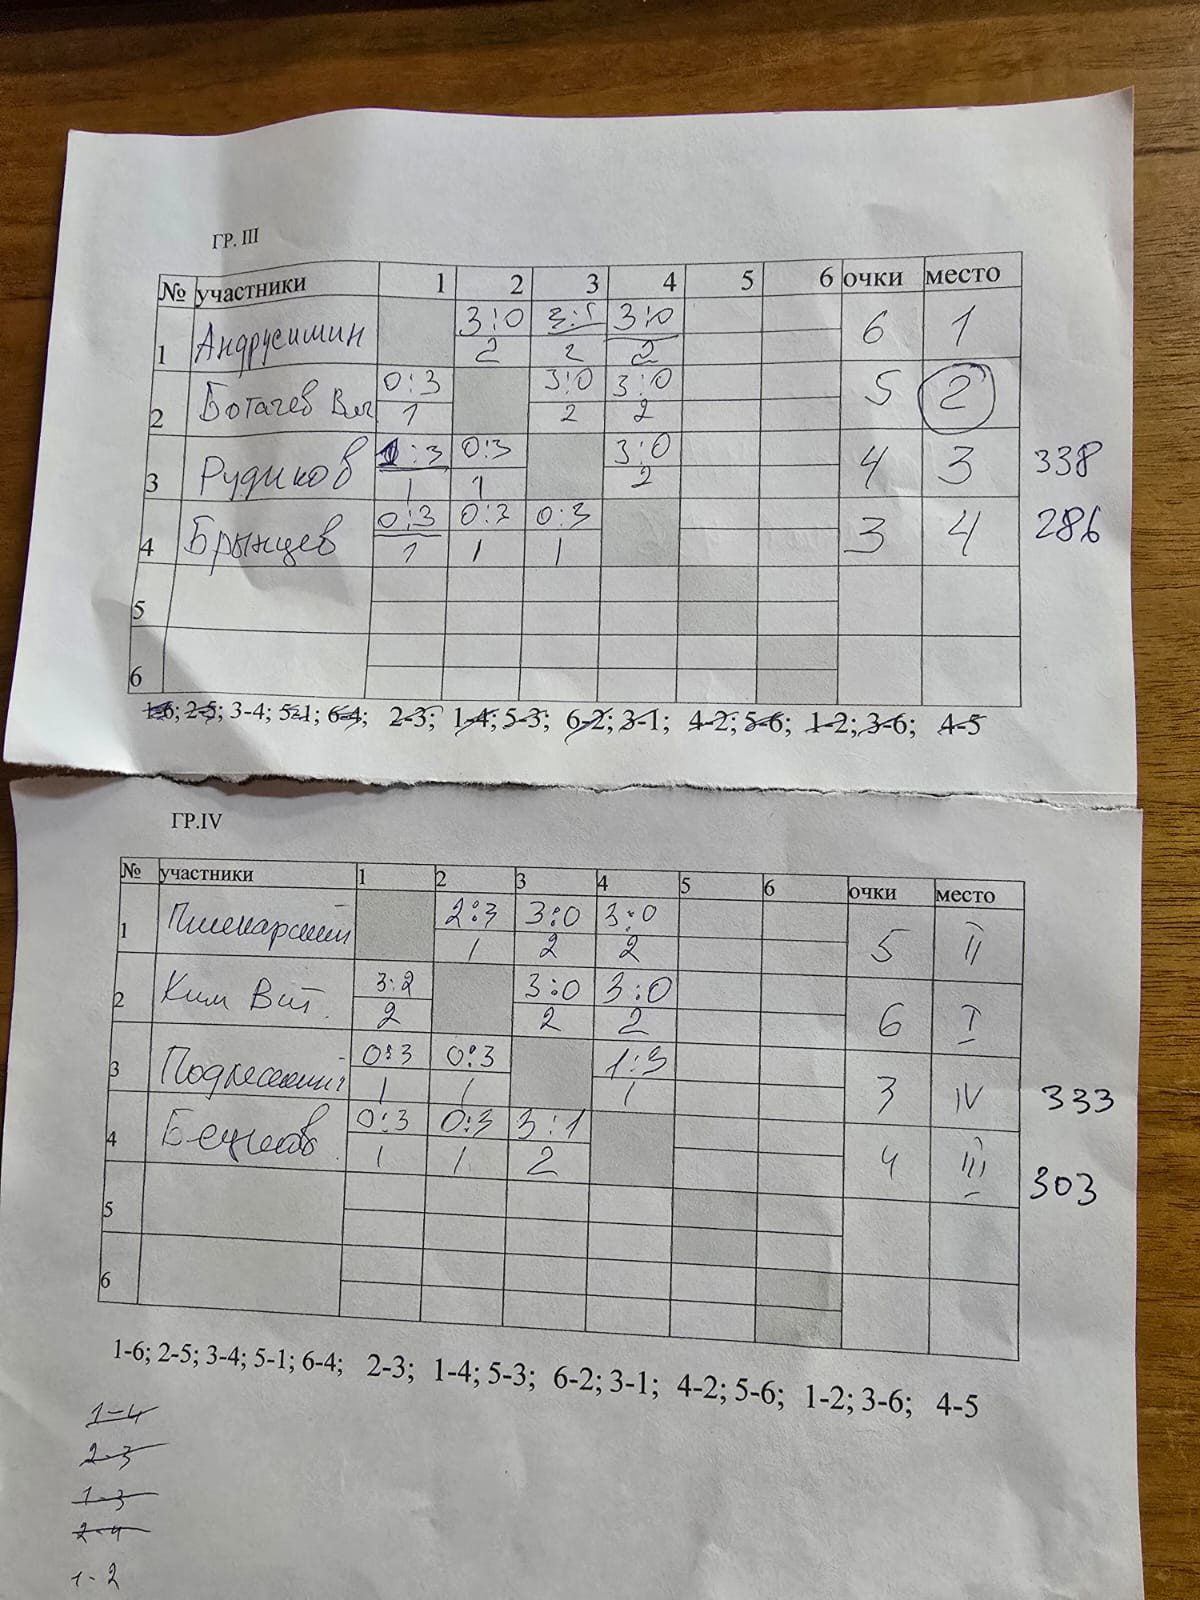 ГР. III
№ участники 1 2 3 4 5 6 очки место
1 Андрусишин 3:0 3:1 3:0 6 1
2 2 2
2 Богачев Вяч 0:3 3:0 3:0 5 2
1 2 2
3 Рудиков 1:3 0:3 3:0 4 3 338
1 1 2
4 Брынцев 0:3 0:3 0:3 3 4 286
1 1 1
5
6
1-6; 2-5; 3-4; 5-1; 6-4; 2-3; 1-4; 5-3; 6-2; 3-1; 4-2; 5-6; 1-2; 3-6; 4-5
ГР.IV
№ участники 1 2 3 4 5 6 очки место
1 2:3 3:0 3:0 5 II
1 2 2
2 Ким Вит. 3:2 3:0 3:0 6 I
2 2 2
3 0:3 0:3 1:3 3 IV 333
1 1 1
4 0:3 0:3 3:1 4 III 303
1 1 2
5
6
1-6; 2-5; 3-4; 5-1; 6-4; 2-3; 1-4; 5-3; 6-2; 3-1; 4-2; 5-6; 1-2; 3-6; 4-5
1-4
2-3
1-3
2-4
1-2